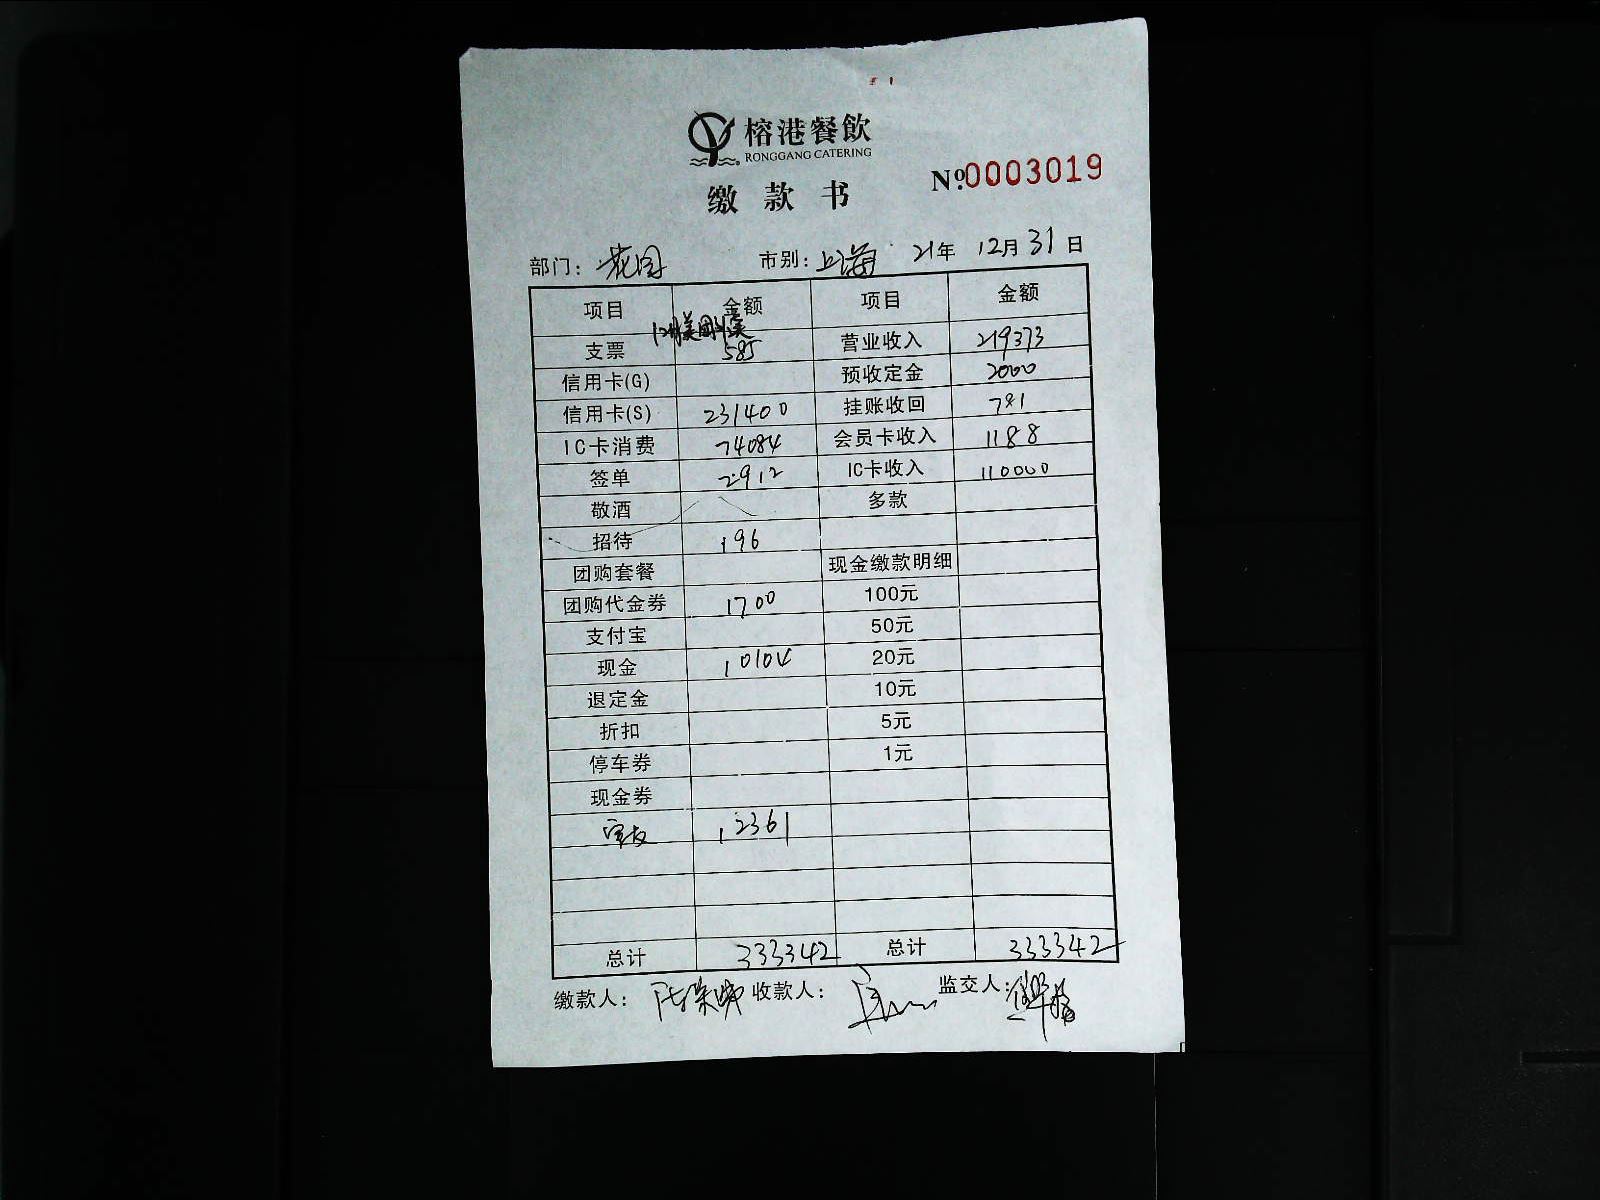 榕港餐飲
RONGGANG CATERING
缴款书
№0003019
部门: 花园 市别: 上海 21年 12月 31日
项目 金额 项目 金额
支票 585 营业收入 219373
信用卡(G) 预收定金 2000
信用卡(S) 231400 挂账收回 781
IC卡消费 74084 会员卡收入 1188
签单 2912 IC卡收入 110000
敬酒 多款
招待 196
团购套餐 现金缴款明细
团购代金券 1700 100元
支付宝 50元
现金 10104 20元
退定金 10元
折扣 5元
停车券 1元
现金券
12361
总计 333342 总计 333342
缴款人: 收款人: 监交人: